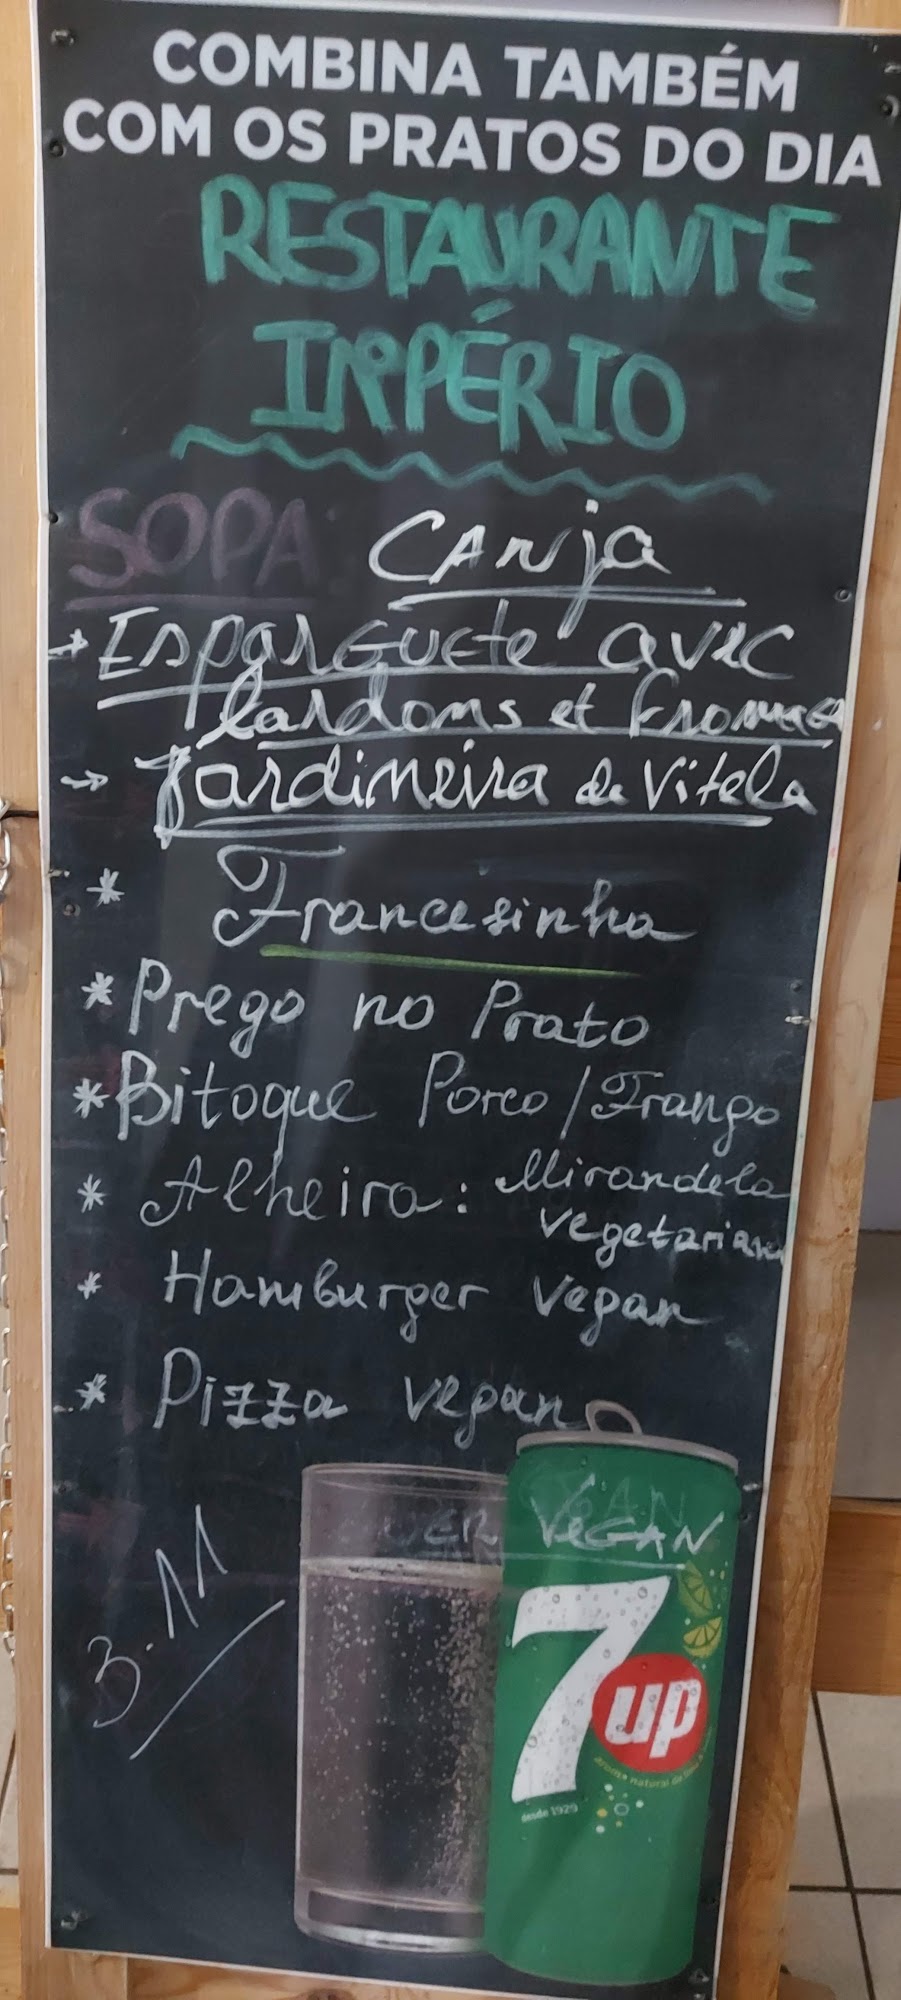 COMBINA TAMBÉM
COM OS PRATOS DO DIA
RESTAURANTE
IMPÉRIO
SOPA: CANja
→ Esparguete avec
lardons et fromage
→ Jardineira de Vitela
* Francesinha
* Prego no Prato
* Bitoque Porco / Frango
* Alheira: Mirandela
vegetariana
* Hamburger vegan
* Pizza vegan
VEGAN
3.11
7up
desde 1929